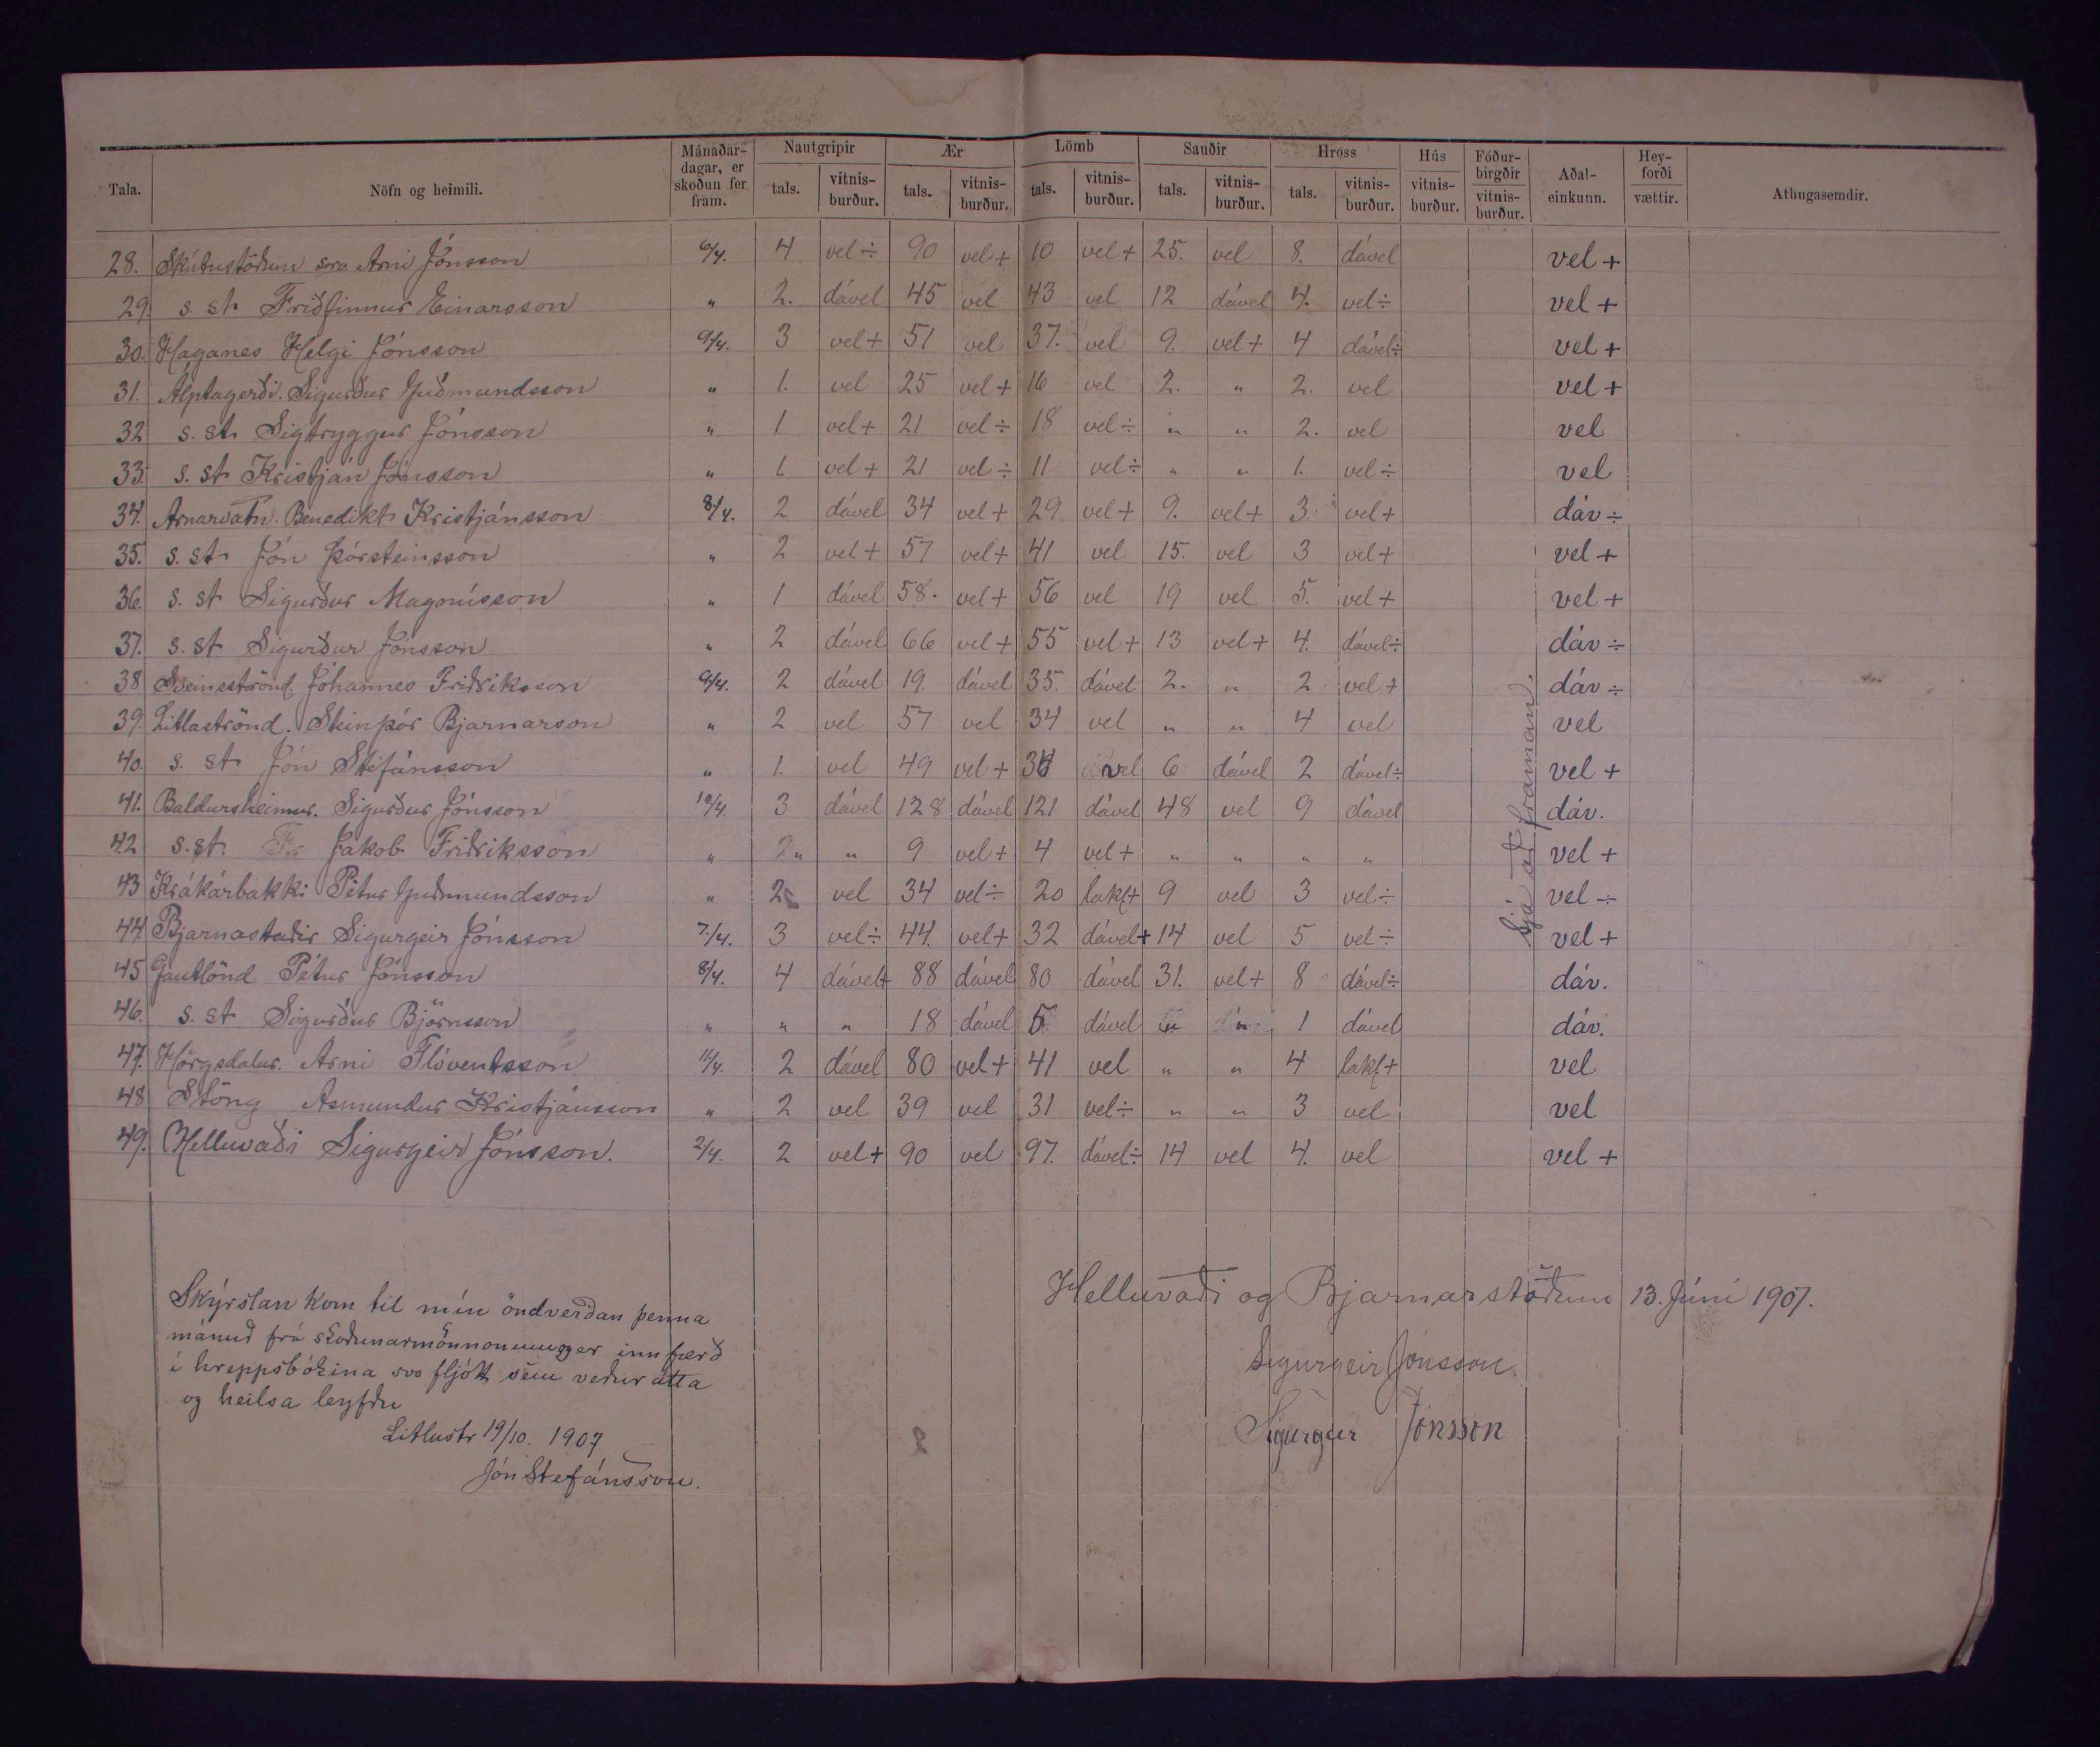 Tala. Nöfn og heimili. Mánaðardagar, er skoðun fer fram. Nautgripir Ær Lömb Sauðir Hross Hús Fóðurbirgðir Aðaleinkunn. Heyforði Athugasemdir.
tals. vitnisburður. tals. vitnisburður. tals. vitnisburður. tals. vitnisburður. tals. vitnisburður. vitnisburður. vitnisburður. vættir.
28. Skútustöðum sra Arni Jónsson 6/4. 4 vel÷ 90 vel+ 10 vel+ 25. vel 8. dável vel+
29. s. st. Friðfinnur Einarsson " 2. dável 45 vel 43 vel 12 dável 4. vel÷ vel+
30. Haganes Helgi Jónsson 9/4. 3 vel+ 51 vel 37. vel 9. vel+ 4 dável÷ vel+
31. Álptagerði. Sigurður Guðmundsson " 1. vel 25 vel+ 16 vel 2. " 2. vel vel+
32 s. st. Sigtryggur Jónsson " 1 vel+ 21 vel÷ 18 vel÷ " " 2. vel vel
33. s. st Kristján Jónsson " 1 vel+ 21 vel÷ 11 vel÷ " " 1. vel÷ vel
34. Arnarvatn. Benedikt Kristjánsson 8/4. 2 dável 34 vel+ 29 vel+ 9. vel+ 3 vel+ dáv÷
35. s. st. Jón Þórsteinsson " 2 vel+ 57 vel+ 41 vel 15. vel 3 vel+ vel+
36. s. st Sigurður Magnússon " 1 dável 58. vel+ 56 vel 19 vel 5. vel+ vel+
37. s. st Sigurður Jónsson " 2 dável 66 vel+ 55 vel+ 13 vel+ 4. dável÷ dáv÷
38 Sveinströnd. Jóhannes Friðriksson 9/4. 2 dável 19. dável 35. dável 2. " 2 vel+ dáv÷
39. Litlaströnd. Steinþór Bjarnarson " 2 vel 57 vel 34 vel " " 4 vel vel
40. s. st. Jón Stefánsson " 1. vel 49 vel+ vel 6 dável 2 dável÷ vel+
41. Baldursheimur. Sigurður Jónsson 10/4. 3 dável 128 dável 121 dável 48 vel 9 dável dáv.
42 s. st. Jakob Friðriksson " " " 9 vel+ 4 vel+ " " " " vel+
43 Krákárbakki Pétur Guðmundsson " 2 vel 34 vel÷ 20 lakl+ 9 vel 3 vel÷ vel÷
44. Bjarnastaðir Sigurgeir Jónsson 7./4. 3 vel÷ 44. vel+ 32 dável+ 14 vel 5 vel÷ vel+
45 Gautlönd Pétur Jónsson 8/4. 4 dável+ 88 dável 80 dável 31. vel+ 8 dável÷ dáv.
46. s. st Sigurður Björnsson " " " 18 dável 5 dável " " 1 dável dáv.
47. Hörgsdalur. Arni Flóventsson 11/4. 2 dável 80 vel+ 41 vel " " 4 lakl+ vel
48 Stöng Asmundur Kristjánsson " 2 vel 39 vel 31 vel÷ " " 3 vel vel
49. Helluvaði Sigurgeir Jónsson. 2/4. 2 vel+ 90 vel 97. dável÷ 14 vel 4. vel vel+
Sjá að framan.
Skýrslan kom til mín öndverðan þenna
mánuð frá skoðunarmönnonum er innfærð
í hreppsbókina svo fljótt sem veður átta
og heilsa leyfðu
Litlustr 19/10. 1907
Jón Stefánsson.
Helluvaði og Bjarnarstöðum 13. Júní 1907.
Sigurgeir Jónsson.
Sigurgeir Jónsson